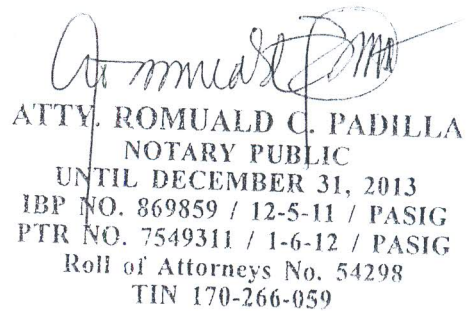 ATTY. ROMUALD C. PADILLA
NOTARY PUBLIC
UNTIL DECEMBER 31, 2013
IBP NO. 869859 / 12-5-11 / PASIG
PTR NO. 7549311 / 1-6-12 / PASIG
Roll of Attorneys No. 54298
TIN 170-266-059